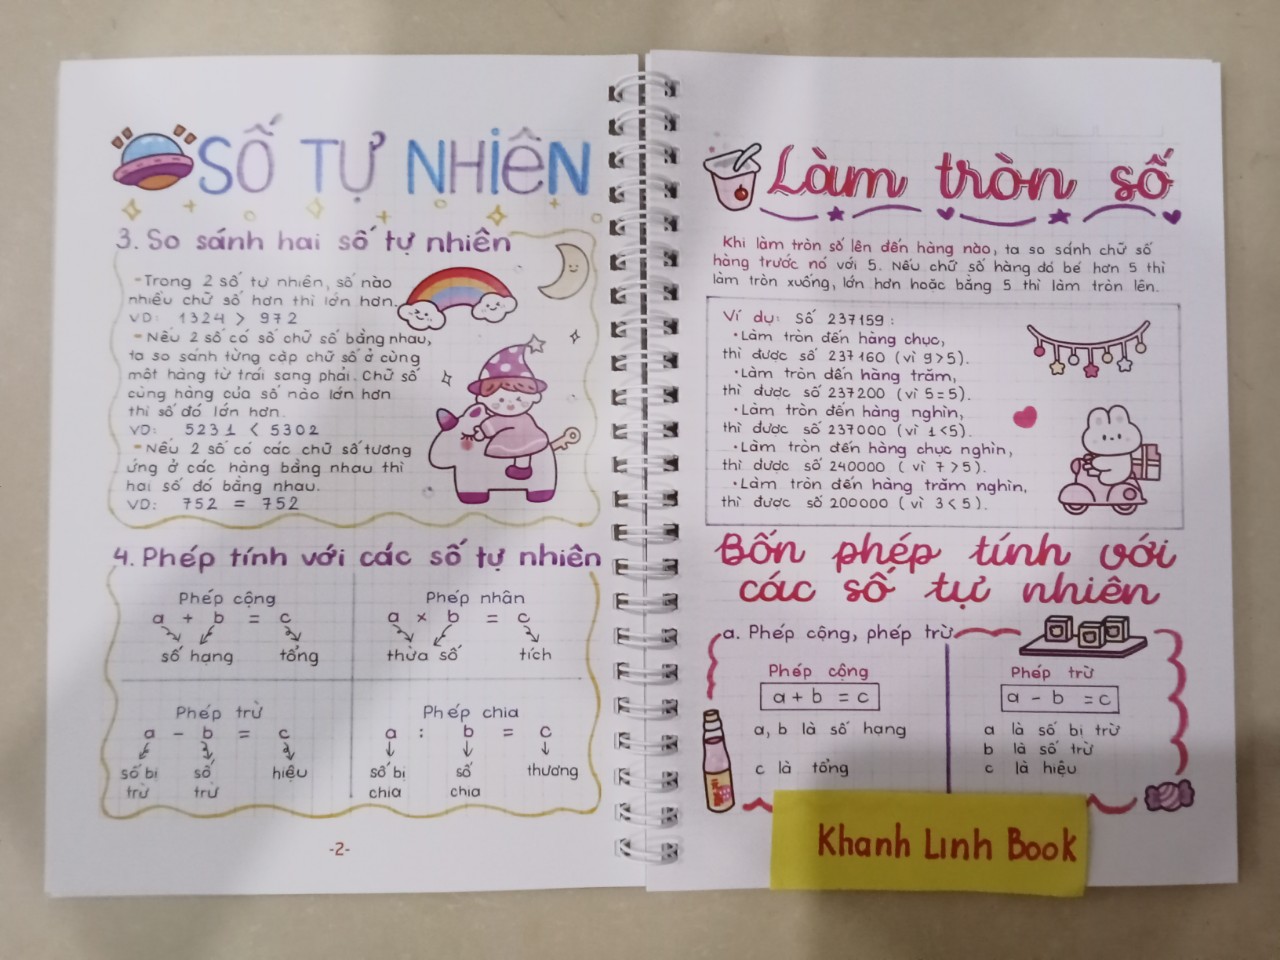 SỐ TỰ NHIÊN
3. So sánh hai số tự nhiên
- Trong 2 số tự nhiên, số nào
nhiều chữ số hơn thì lớn hơn.
VD: 1324 > 972
- Nếu 2 số có số chữ số bằng nhau,
ta so sánh từng cặp chữ số ở cùng
một hàng từ trái sang phải. Chữ số
cùng hàng của số nào lớn hơn
thì số đó lớn hơn.
VD: 5231 < 5302
- Nếu 2 số có các chữ số tương
ứng ở các hàng bằng nhau thì
hai số đó bằng nhau.
VD: 752 = 752
4. Phép tính với các số tự nhiên
Phép cộng
a + b = c
số hạng tổng
Phép nhân
a × b = c
thừa số tích
Phép trừ
a - b = c
số bị số hiệu
trừ trừ
Phép chia
a : b = c
số bị số thương
chia chia
-2-
Làm tròn số
Khi làm tròn số lên đến hàng nào, ta so sánh chữ số
hàng trước nó với 5. Nếu chữ số hàng đó bé hơn 5 thì
làm tròn xuống, lớn hơn hoặc bằng 5 thì làm tròn lên.
Ví dụ: Số 237159:
• Làm tròn đến hàng chục,
thì được số 237160 (vì 9>5).
• Làm tròn đến hàng trăm,
thì được số 237200 (vì 5=5).
• Làm tròn đến hàng nghìn,
thì được số 237000 (vì 1<5).
• Làm tròn đến hàng chục nghìn,
thì được số 240000 (vì 7>5).
• Làm tròn đến hàng trăm nghìn,
thì được số 200000 (vì 3<5).
Bốn phép tính với
các số tự nhiên
a. Phép cộng, phép trừ
Phép cộng
a + b = c
a, b là số hạng
c là tổng
Phép trừ
a - b = c
a là số bị trừ
b là số trừ
c là hiệu
Khanh Linh Book